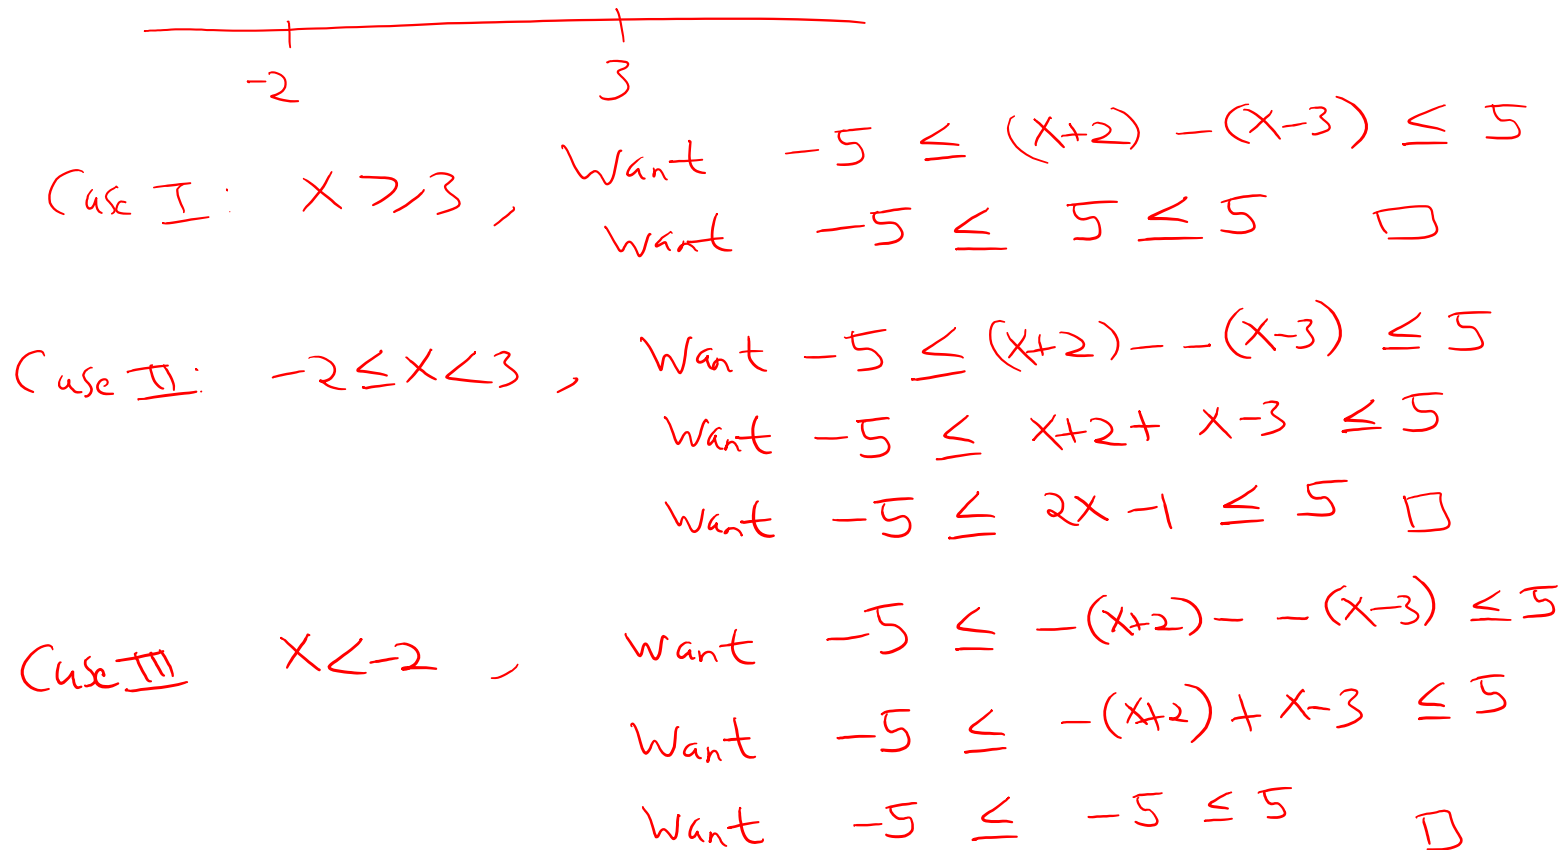 -2 3
Case I: x ≥ 3, Want -5 ≤ (x+2) - (x-3) ≤ 5
Want -5 ≤ 5 ≤ 5 □
Case II: -2 ≤ x < 3, Want -5 ≤ (x+2) - -(x-3) ≤ 5
Want -5 ≤ x+2+ x-3 ≤ 5
Want -5 ≤ 2x-1 ≤ 5 □
Case III x < -2, Want -5 ≤ -(x+2) - -(x-3) ≤ 5
Want -5 ≤ -(x+2) + x-3 ≤ 5
Want -5 ≤ -5 ≤ 5 □